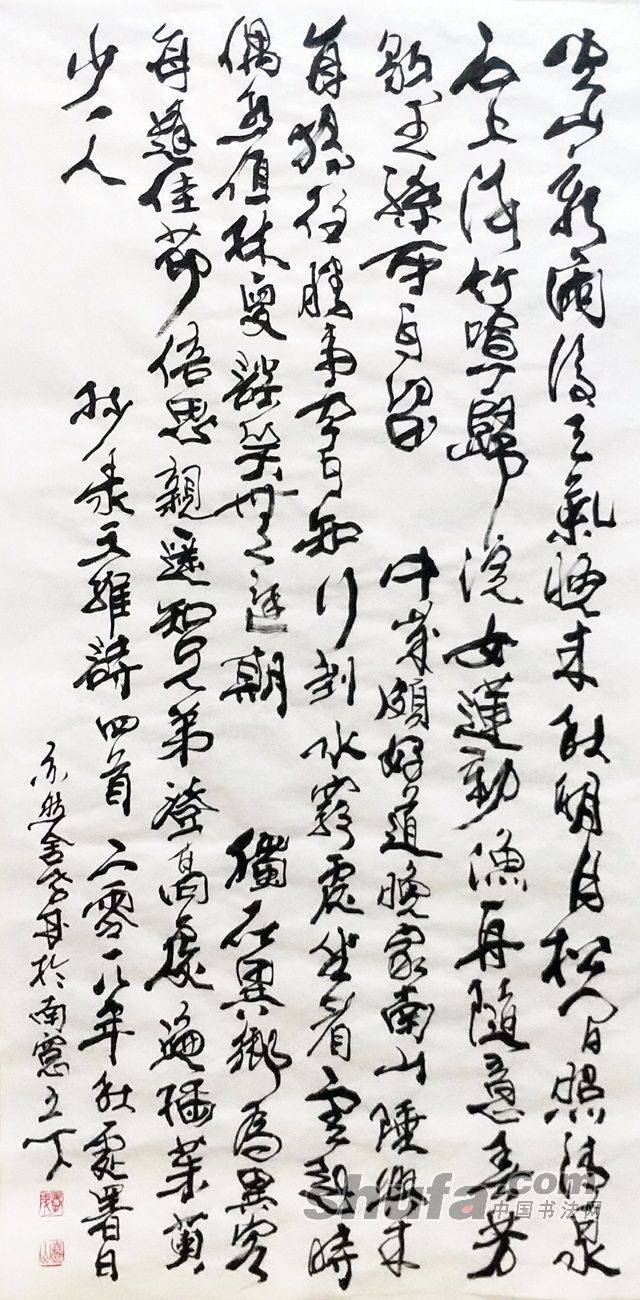 空山新雨後天氣晚来秋明月松间照清泉
石上流竹喧歸浣女蓮動漁舟随意春芳
歇王孫可自留 中歲頗好道晚家南山陲興来
每獨往勝事空自知行到水窮處坐看雲起時
偶然值林叟談笑無還期 獨在異鄉為異客
每逢佳節倍思親遥知兄弟登高處遍插茱萸
少一人 抄录王維詩四首 二零一八年秋處暑日
亦然舍 於南窗
shufa.com
中国书法网